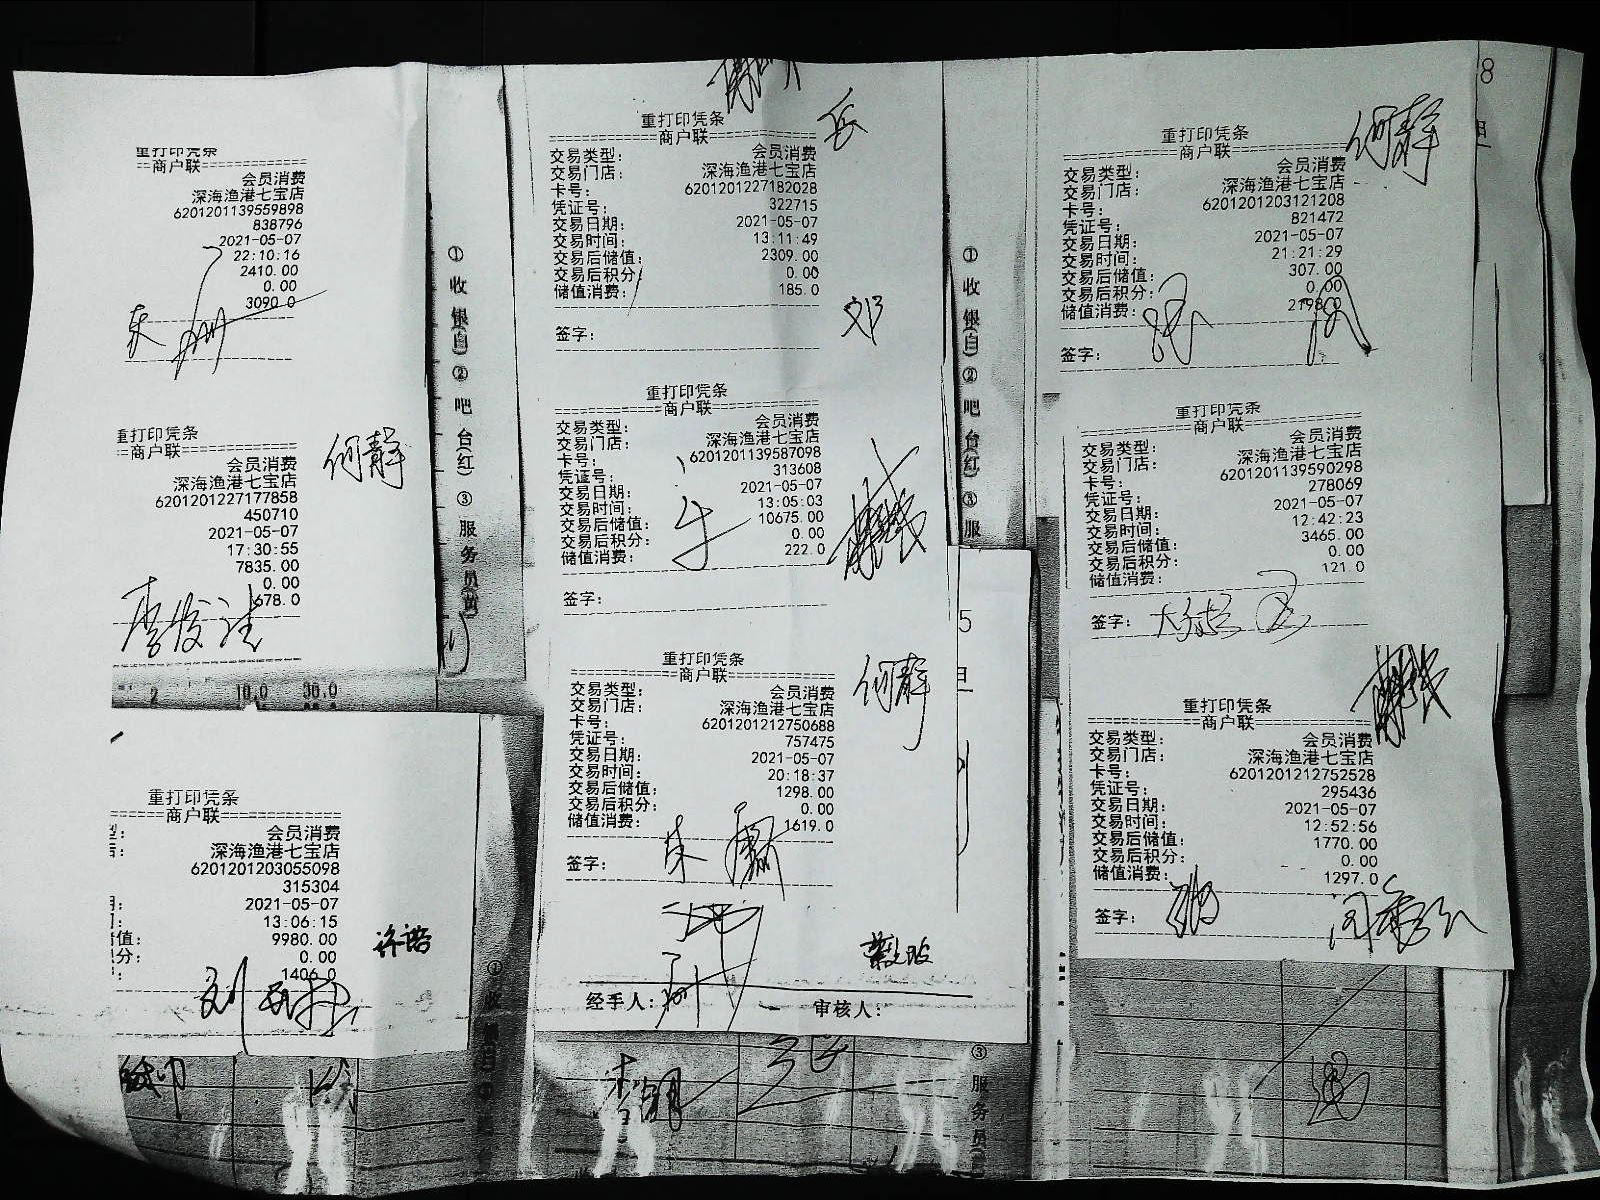 重打印凭条
==商户联================
会员消费
深海渔港七宝店
6201201139559898
838796
2021-05-07
22:10:16
2410.00
0.00
3090.0
重打印凭条
==商户联================
会员消费
深海渔港七宝店
6201201227177858
450710
2021-05-07
17:30:55
7835.00
0.00
678.0
何静
李发法
2 10.0 30.0
重打印凭条
======商户联==============
型: 会员消费
店: 深海渔港七宝店
6201201203055098
315304
期: 2021-05-07
间: 13:06:15
值: 9980.00
分: 0.00
1406.0
许诺
① 收 银(白) ② 吧 台(红) ③ 服 务 员(黄)
重打印凭条
============商户联============
交易类型: 会员消费
交易门店: 深海渔港七宝店
卡号: 6201201227182028
凭证号: 322715
交易日期: 2021-05-07
交易时间: 13:11:49
交易后储值: 2309.00
交易后积分: 0.00
储值消费: 185.0
签字:
邓
重打印凭条
============商户联============
交易类型: 会员消费
交易门店: 深海渔港七宝店
卡号: 6201201139587098
凭证号: 313608
交易日期: 2021-05-07
交易时间: 13:05:03
交易后储值: 10675.00
交易后积分: 0.00
储值消费: 222.0
牛
签字:
重打印凭条
============商户联============
何静
交易类型: 会员消费
交易门店: 深海渔港七宝店
卡号: 6201201212750688
凭证号: 757475
交易日期: 2021-05-07
交易时间: 20:18:37
交易后储值: 1298.00
交易后积分: 0.00
储值消费: 1619.0
签字: 朱
经手人: 审核人:
① 收 银(白) ② 吧 台(红) ③ 服
5
③ 服 务 员
8
重打印凭条
============商户联============
何静
交易类型: 会员消费
交易门店: 深海渔港七宝店
卡号: 6201201203121208
凭证号: 821472
交易日期: 2021-05-07
交易时间: 21:21:29
交易后储值: 307.00
交易后积分: 0.00
储值消费: 2198.0
签字:
重打印凭条
============商户联============
交易类型: 会员消费
交易门店: 深海渔港七宝店
卡号: 6201201139590298
凭证号: 278069
交易日期: 2021-05-07
交易时间: 12:42:23
交易后储值: 3465.00
交易后积分: 0.00
储值消费: 121.0
签字:
重打印凭条
============商户联============
交易类型: 会员消费
交易门店: 深海渔港七宝店
卡号: 6201201212752528
凭证号: 295436
交易日期: 2021-05-07
交易时间: 12:52:56
交易后储值: 1770.00
交易后积分: 0.00
储值消费: 1297.0
签字: